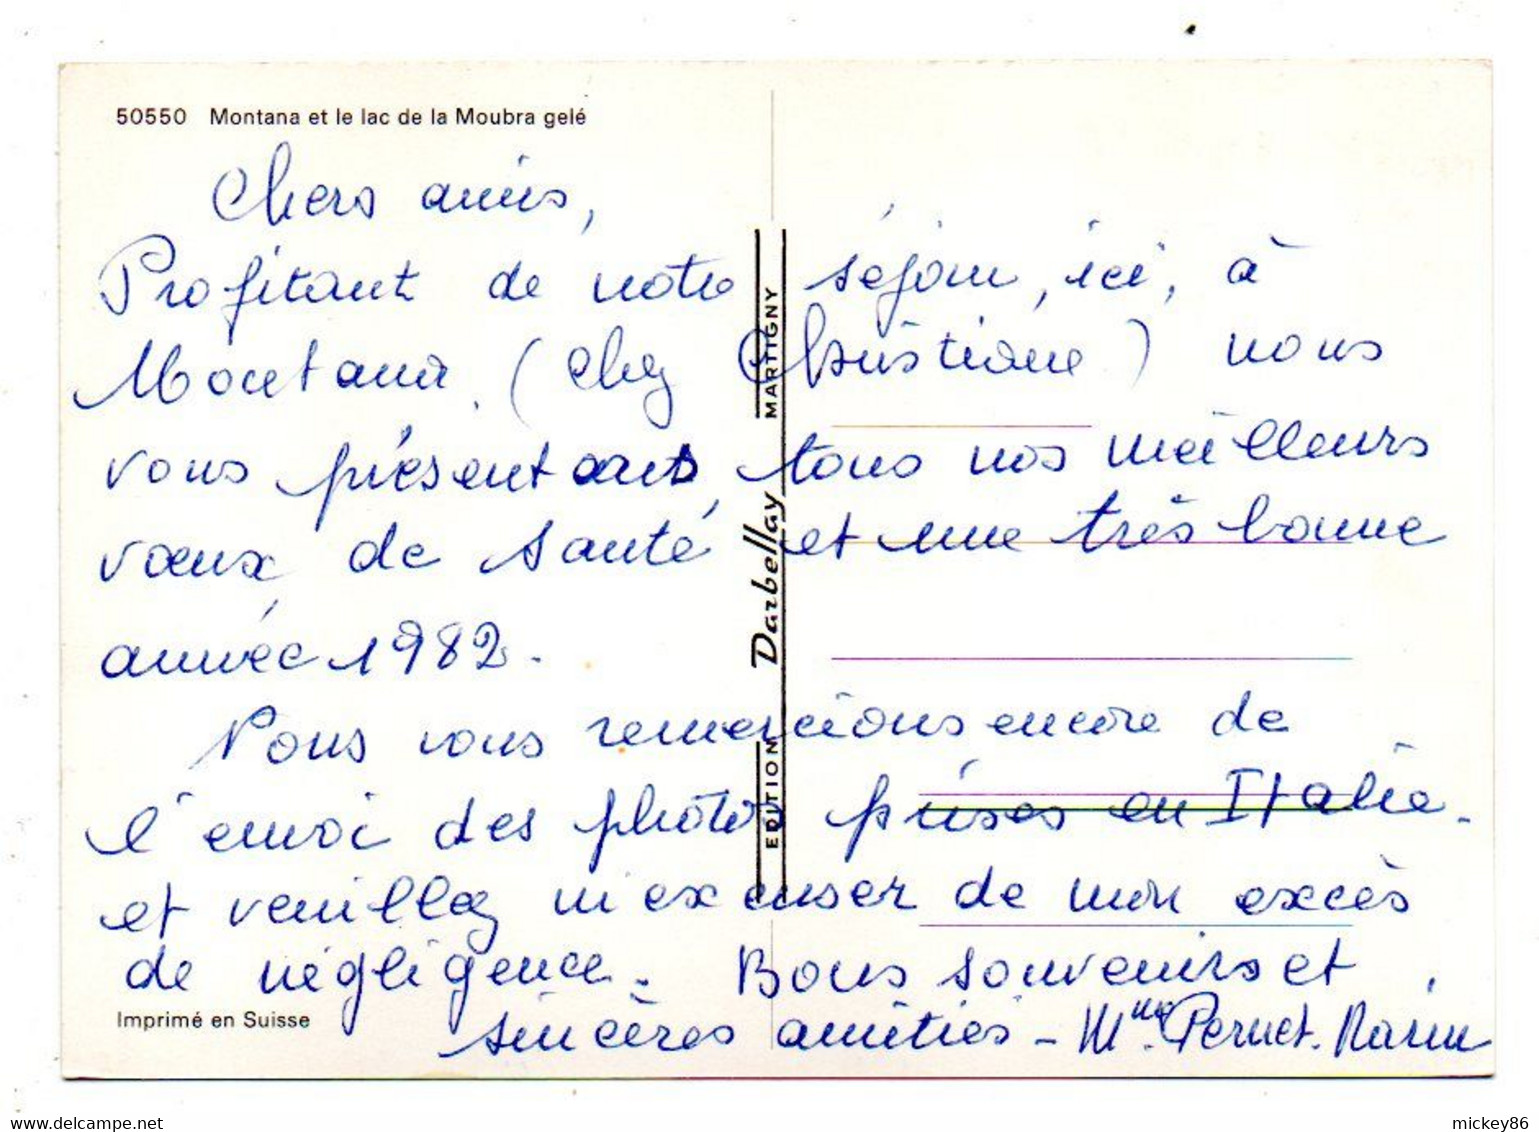 50550 Montana et le lac de la Moubra gelé
Chers amis,
Profitant de notre séjour, ici, à
Montana. (chez Christiane) nous
vous présentons, tous nos meilleurs
vœux de santé, et une très bonne
année 1982.
Nous vous remercions encore de
l'envoi des photos prises en Italie.
et veuillez m'excuser de mon excès
de négligence. Bons souvenirs et
sincères amitiés - Mme Pernet.
Imprimé en Suisse
EDITION Darbellay MARTIGNY
mickey86